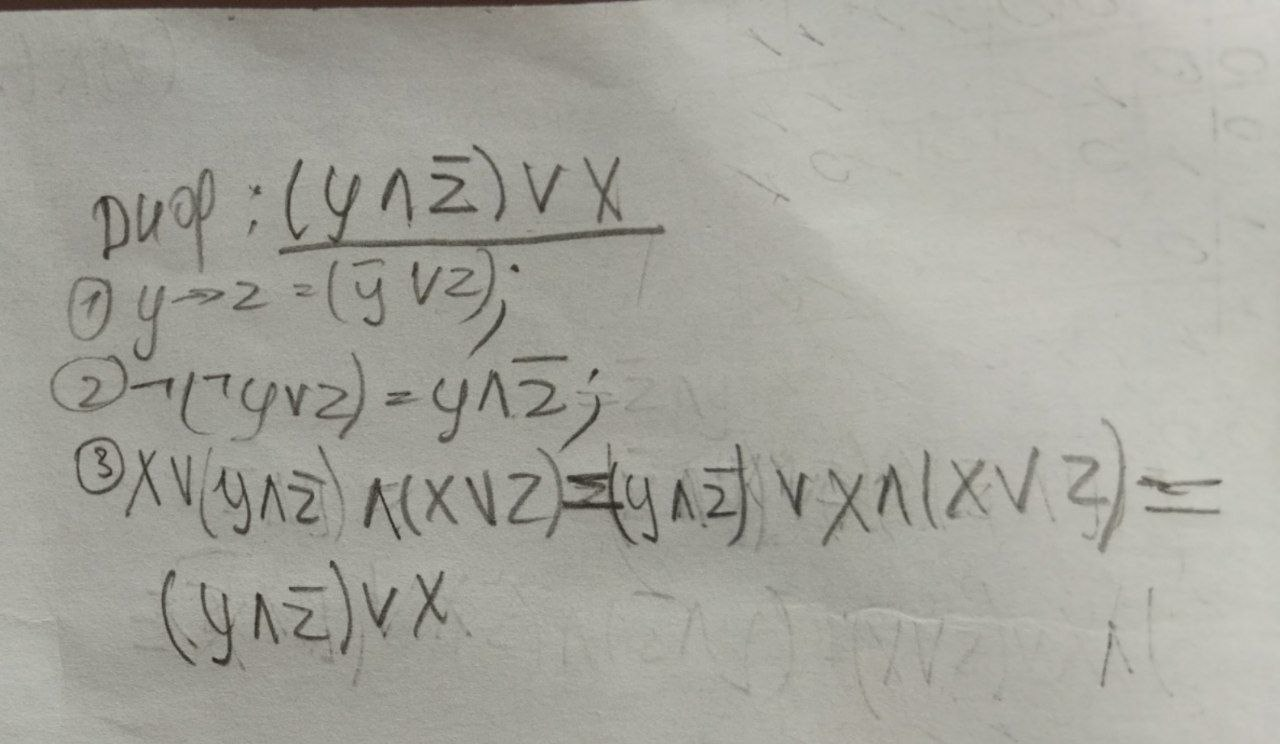 ДНФ: (y ∧ z̅) ∨ x
① y → z = (y̅ ∨ z);
② ¬(¬y ∨ z) = y ∧ z̅;
③ x ∨ (y ∧ z̅) ∧ (x ∨ z) = (y ∧ z̅) ∨ x ∧ (x ∨ z) =
(y ∧ z̅) ∨ x